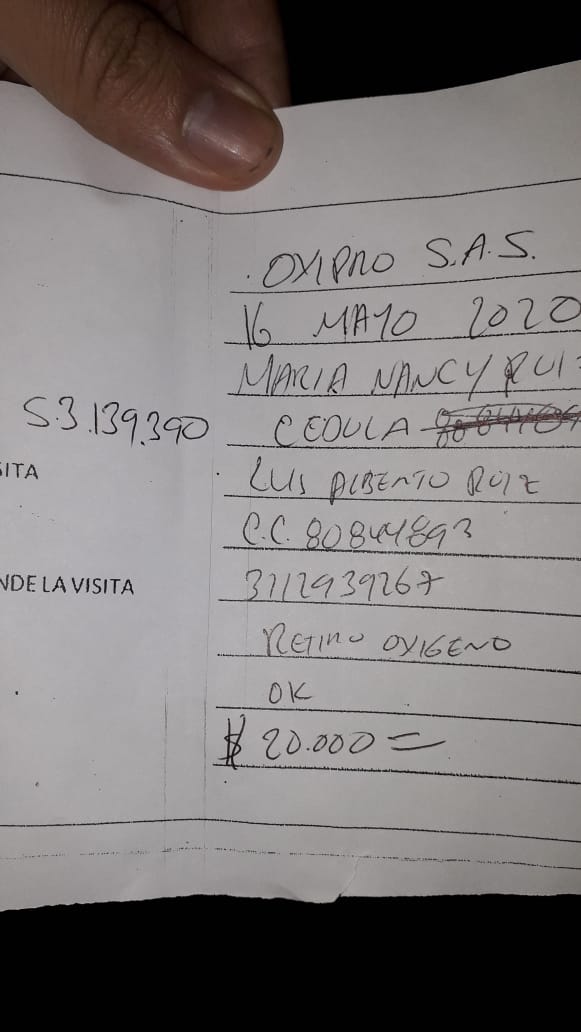 OXIPRO S.A.S.
16 MAYO 2020
MARIA NANCY RUIZ
53.139.390 CEDULA
SITA
LUIS ALBERTO RUIZ
C.C. 80844893
NDE LA VISITA
3112939267
RETIRO OXIGENO
OK
$ 20.000 =